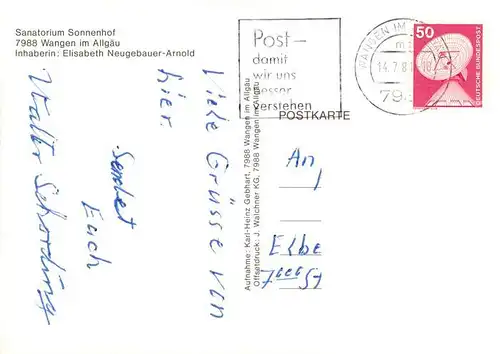 Sanatorium Sonnenhof
7988 Wangen im Allgäu
Inhaberin: Elisabeth Neugebauer-Arnold
Viele Grüsse von
hier.
Sendet
Euch
Walter
Aufnahme: Karl-Heinz Gebhart, 7988 Wangen im Allgäu
Offsetdruck: J. Walchner KG, 7988 Wangen im Allgäu
Post–
damit
wir uns
besser
verstehen
WANGEN IM
14.7.8
79
50
DEUTSCHE BUNDESPOST
POSTKARTE
An